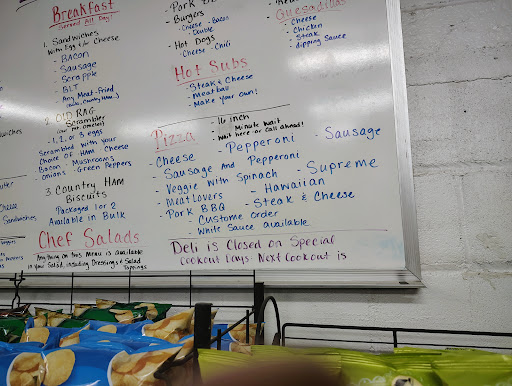 Breakfast
Served All Day!
1. Sandwiches
With Egg & Cheese
- BACON
- Sausage
- Scrapple
- BLT
- Any Meat-Fried
2. OLD RAG
Scrambler
(or not omelet)
- 1, 2, or 3 eggs
Scrambled with your
Choice of Ham Cheese
Bacon - Mushrooms
- Onions - Green Peppers
3 Country HAM
Biscuits
Packaged 1 or 2
Available in Bulk
Chef Salads
Any thing on this Menu is available
in your Salad, including Dressings & Salad
Toppings
- Burgers
- Cheese - Bacon
- Double
- Hot Dogs
- Cheese - Chili
Hot Subs
- Steak & Cheese
- Meatball
- Make your own!
Quesadillas
- Cheese
- Chicken
- Steak
- dipping Sauce
Pizza
- 16 inch
Minute wait
Wait here or call ahead!
- Cheese
- Pepperoni
- Sausage
- Sausage And Pepperoni
- Veggie With Spinach
- Supreme
- Meat Lovers
- Hawaiian
- Pork BBQ
- Steak & Cheese
- Custome order
- White Sauce available
Deli is Closed on Special
Cookout Days. Next Cookout is